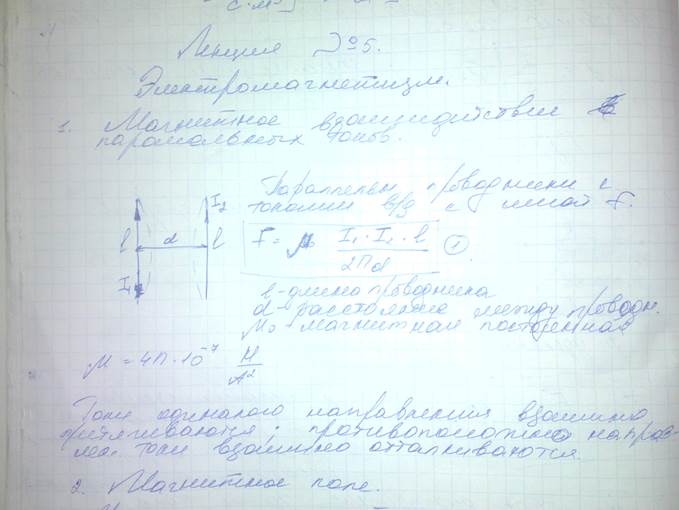 Лекция №5.
Электромагнетизм.
1. Магнитное взаимодействие
паралельных токов.
Параллельн проводники с
токами в/д с силой F.
I₂
l d l
I₁
F = μ₀ I₁·I₂·l / 2πd (1)
l - длина проводника
d - расстояние между проводн.
μ₀ - магнитная постоянная
μ = 4π·10⁻⁷ Н/А²
Токи одинакого направления взаимно
притягиваются, противоположно направ-
лен. токи взаимно отталкиваются.
2. Магнитное поле.